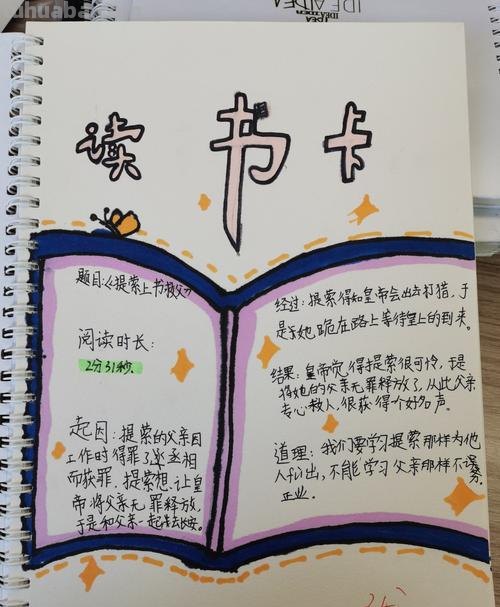 IDEAIDEA
读 书 卡
题目:《提索上书救父》
阅读时长:
2分31秒.
起因:提索的父亲因
工作时得罪了丞相
而获罪,提索想让皇
帝将父亲无罪释放,
于是和父亲一起去长安。
经过:提索得知皇帝会出去打猎,于
是她跪在路上等待皇上的到来。
结果:皇帝觉得提索很可怜,于是
将她的父亲无罪释放了,从此父亲
专心救人,很获得个好名声。
道理:我们要学习提索那样为他
人付出,不能学习父亲那样不
正业.